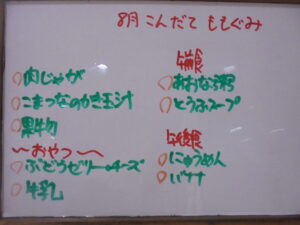 8月 こんだて ももぐみ
肉じゃが
こまつなのかき玉汁
果物
〜おやつ〜
ぶどうゼリー・チーズ
牛乳
午前食
あおな粥
とうふスープ
午後食
にゅうめん
バナナ